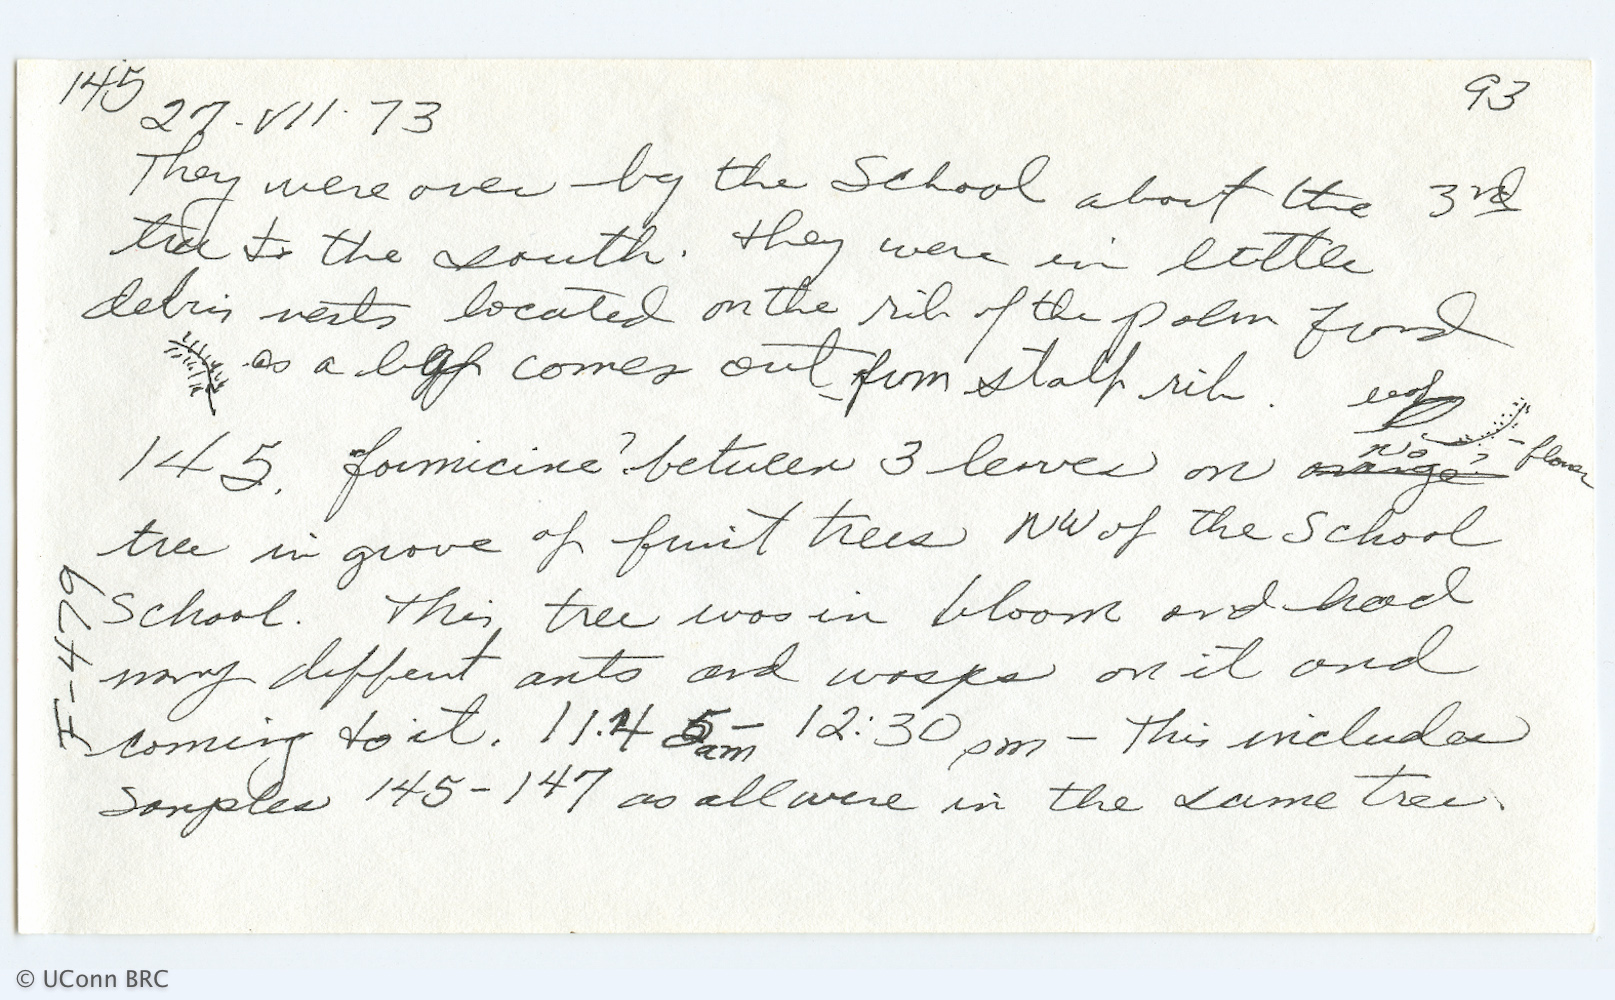 145
93
27·VII·73
They were over by the School about the 3rd
tree to the south. They were in little
debris nests located on the rib of the palm frond
as a leaf comes out from stalk rib.
leaf
145. formicine? between 3 leaves on orange
no ?
- flower
tree in grove of fruit trees NW of the School
School. This tree was in bloom and had
many different ants and wasps on it and
coming to it. 11:45 am - 12:30 pm - This includes
samples 145-147 as all were in the same tree.
F-479
© UConn BRC